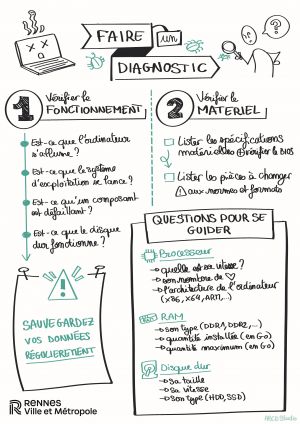 FAIRE un
DIAGNOSTIC
1 Vérifier le
FONCTIONNEMENT
Est-ce que l'ordinateur
s'allume ?
Est-ce que le système
d'exploitation se lance ?
Est-ce qu'un composant
est défaillant ?
Est-ce que le disque
dur fonctionne ?
!
SAUVEGARDEZ
VOS DONNÉES
RÉGULIÈREMENT
RENNES
Ville et Métropole
2 Vérifier le
MATÉRIEL
Lister les spécifications
matérielles + vérifier le BIOS
Lister les pièces à changer
⚠ aux normes et formats
QUESTIONS POUR SE
GUIDER
Processeur
→ quelle est sa vitesse ?
→ son nombre de ♡
→ l'architecture de l'ordinateur
(x86, x64, ARM,...)
RAM
→ son type (DDR1, DDR2,...)
→ quantité installée (en Go)
→ quantité maximum (en Go)
Disque dur
→ sa taille
→ sa vitesse
→ son type (HDD, SSD)